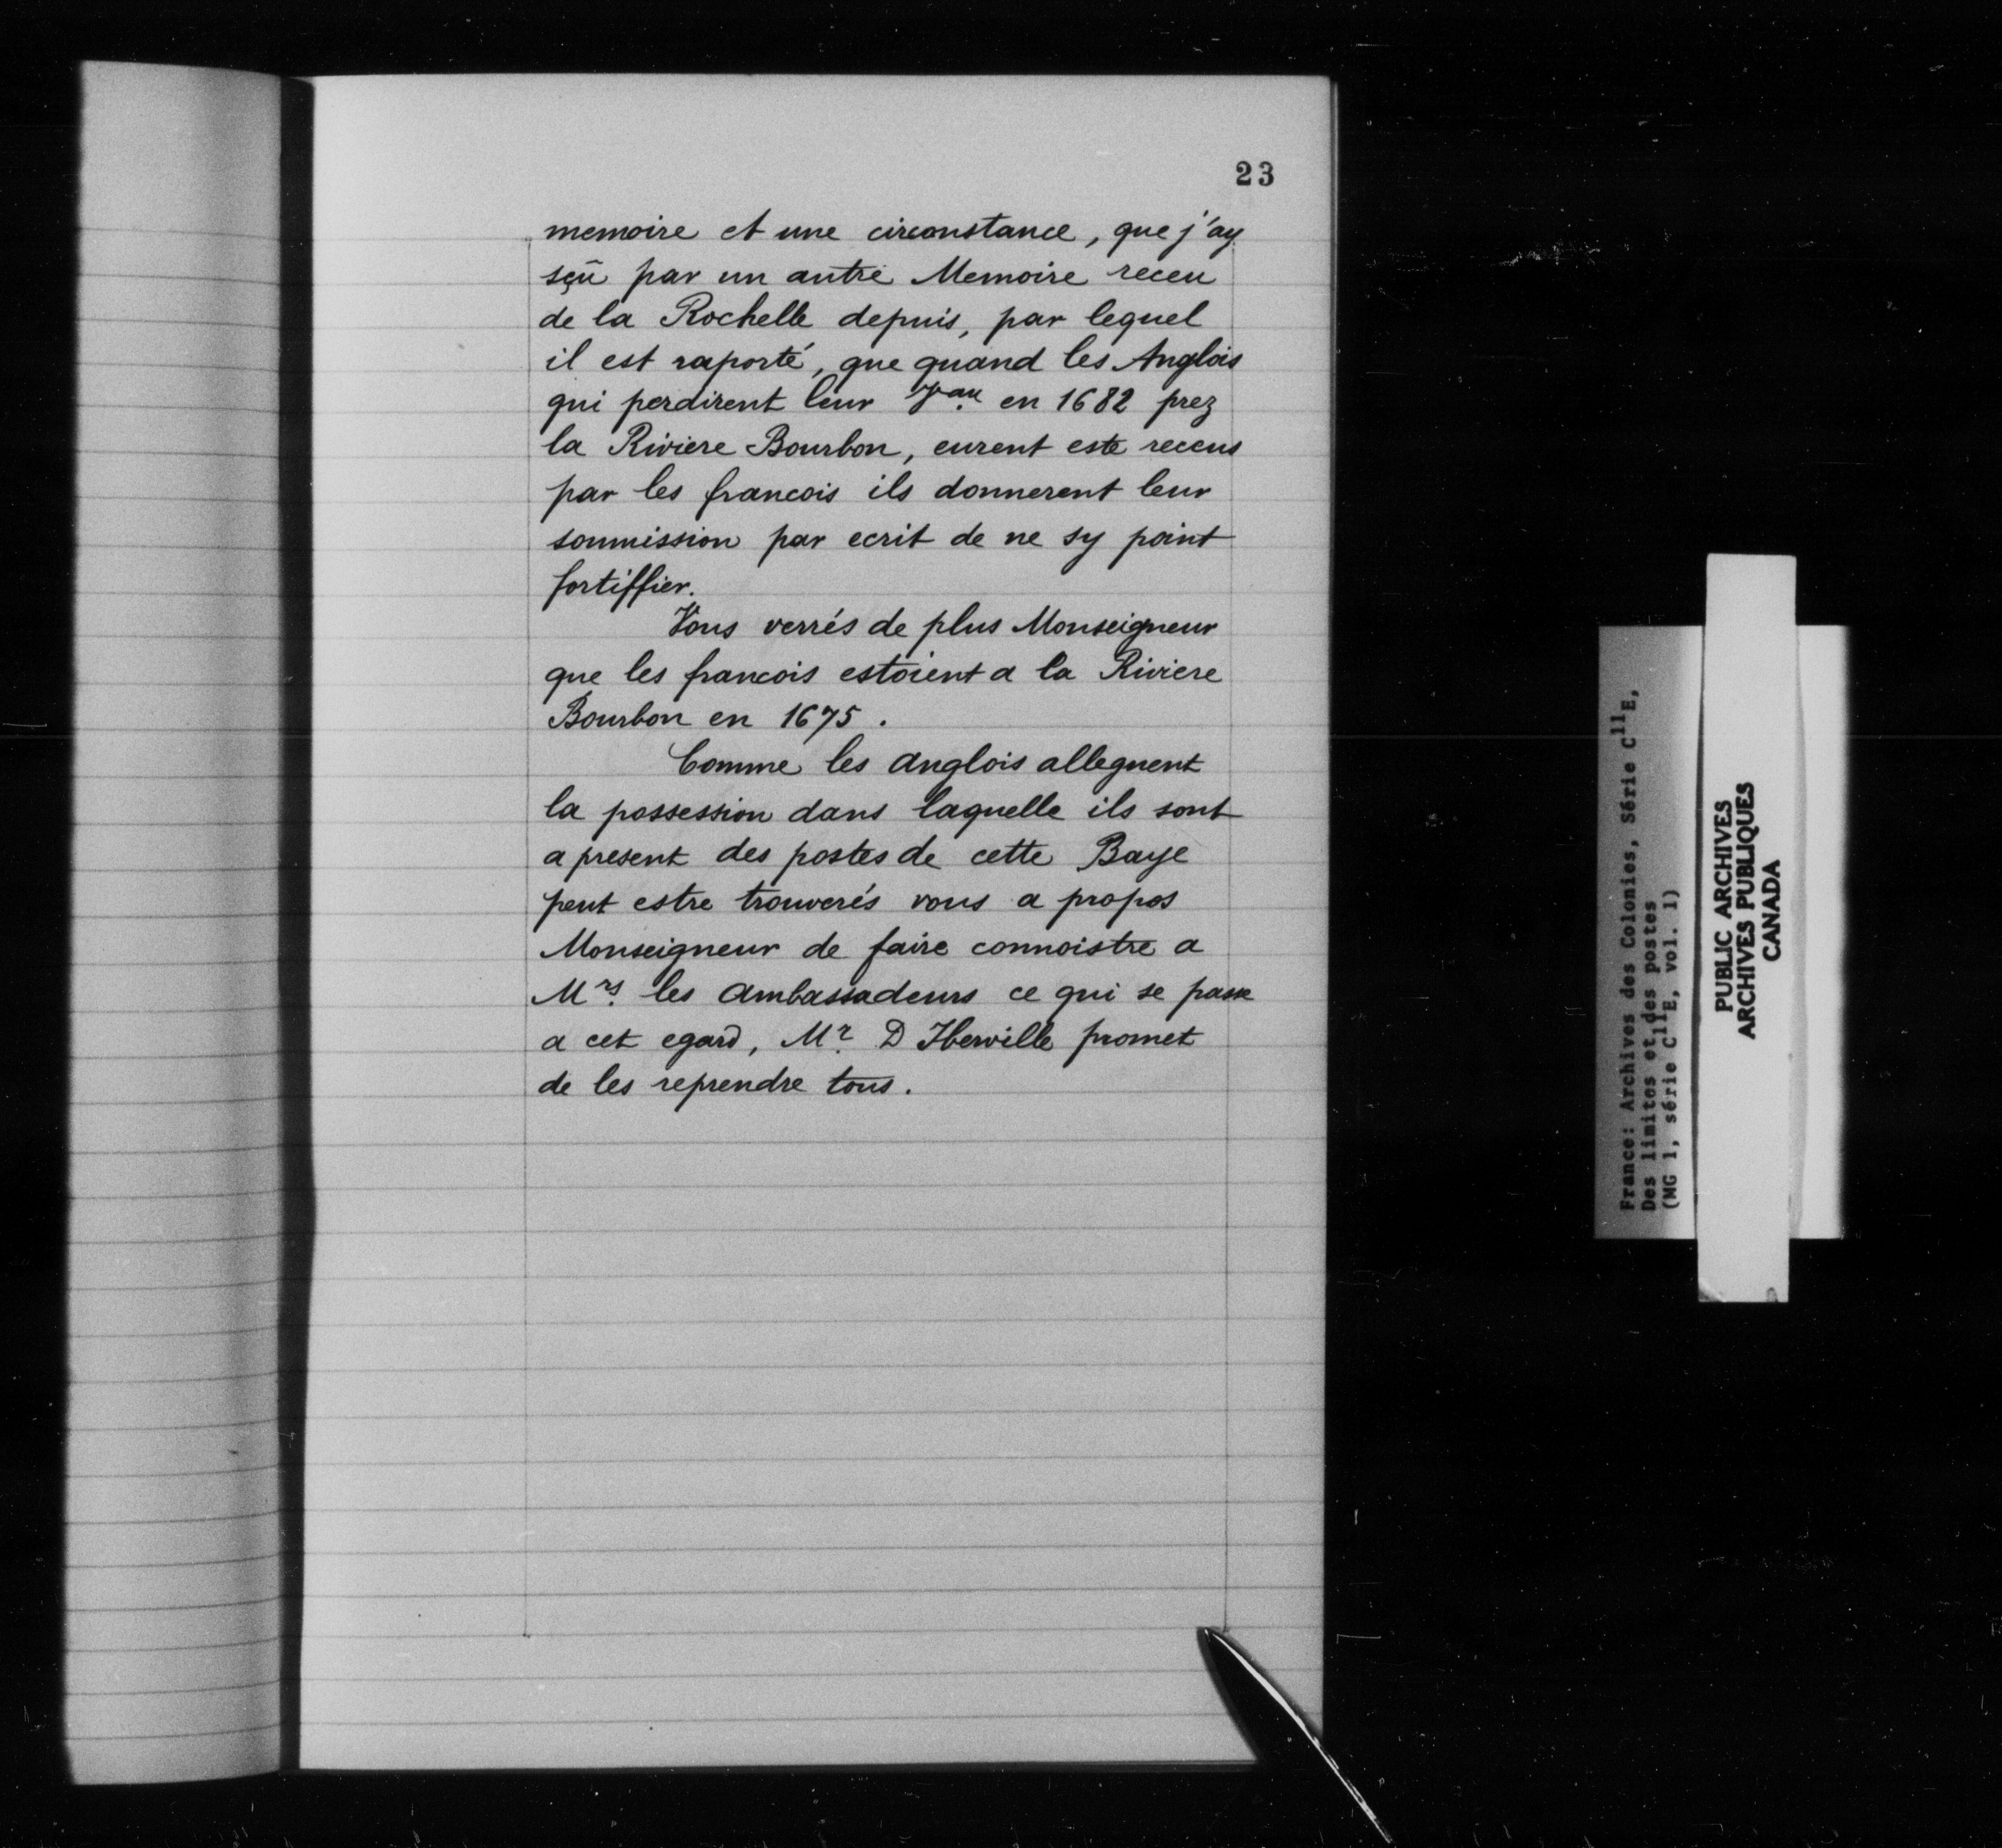 23
memoire et une circonstance, que j'ay
sçû par un autre Memoire receu
de la Rochelle depuis, par lequel
il est raporté, que quand les Anglois
qui perdirent leur Vau en 1682 prez
la Riviere Bourbon, eurent este receus
par les francois ils donnerent leur
soumission par ecrit de ne sy point
fortiffier.
Vous verrés de plus Monseigneur
que les francois estoient a la Riviere
Bourbon en 1675.
Comme les anglois alleguent
la possession dans laquelle ils sont
a present des postes de cette Baye
peut estre trouverés vous a propos
Monseigneur de faire connoistre a
Mrs. les ambassadeurs ce qui se passe
a cet egard, Mr. D Iberville promet
de les reprendre tous.
France: Archives des Colonies, Série C11E,
Des limites et des postes
(MG 1, série C11E, vol. 1)
PUBLIC ARCHIVES
ARCHIVES PUBLIQUES
CANADA